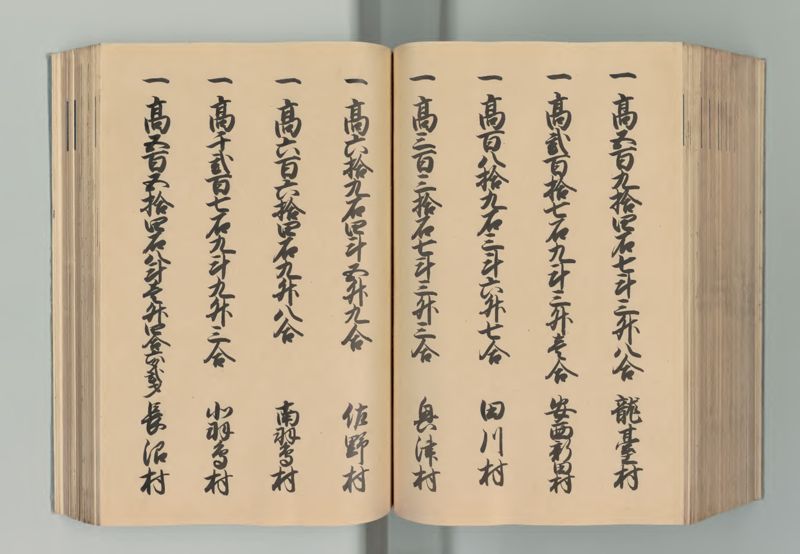 一 高五百九拾四石七斗三升八合 龍臺村
一 高貳百拾七石九斗三升壱合 安西新田村
一 高百八拾九石三斗六升七合 田川村
一 高三百三拾石七斗三升三合 奥津村
一 高六拾九石四斗五升九合 佐野村
一 高六百六拾四石九升八合 南羽鳥村
一 高千貳百七石九斗九升三合 北羽鳥村
一 高五百五拾四石八斗壱升四合六勺貳才 長沼村